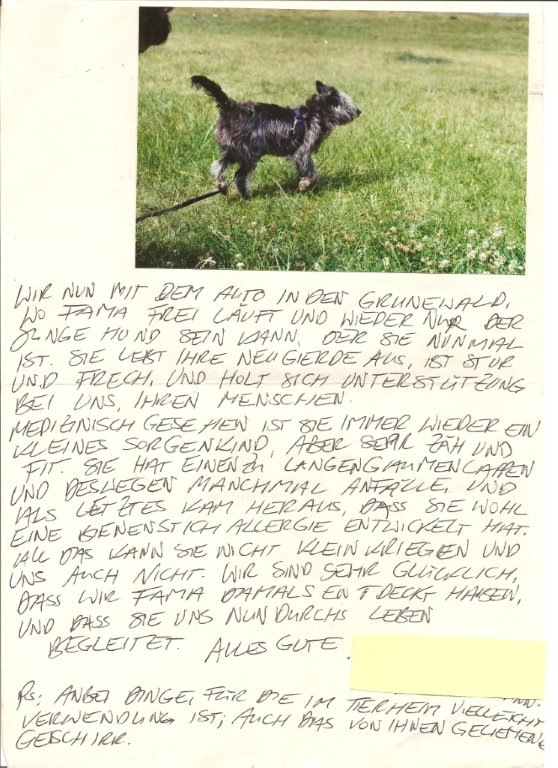 WIR NUN MIT DEM AUTO IN DEN GRUNEWALD,
WO FAMA FREI LÄUFT UND WIEDER NUR DER
JUNGE HUND SEIN KANN, DER SIE NUNMAL
IST. SIE LEBT IHRE NEUGIERDE AUS, IST STUR
UND FRECH, UND HOLT SICH UNTERSTÜTZUNG
BEI UNS, IHREN MENSCHEN.
MEDIZINISCH GESEHEN IST SIE IMMER WIEDER EIN
KLEINES SORGENKIND, ABER SEHR ZÄH UND
FIT. SIE HAT EINEN ZU LANGEN GAUMENLAPPEN
UND DESWEGEN MANCHMAL ANFÄLLE, UND
ALS LETZTES KAM HERAUS, DASS SIE WOHL
EINE BIENENSTICHALLERGIE ENTWICKELT HAT.
ALL DAS KANN SIE NICHT KLEIN KRIEGEN UND
UNS AUCH NICHT. WIR SIND SEHR GLÜCKLICH,
DASS WIR FAMA DAMALS ENTDECKT HABEN,
UND DASS SIE UNS NUN DURCHS LEBEN
BEGLEITET. ALLES GUTE
PS: ANBEI DINGE, FÜR DIE IM TIERHEIM VIELLEICHT
VERWENDUNG IST, AUCH DAS VON IHNEN GELIEHENE
GESCHIRR.